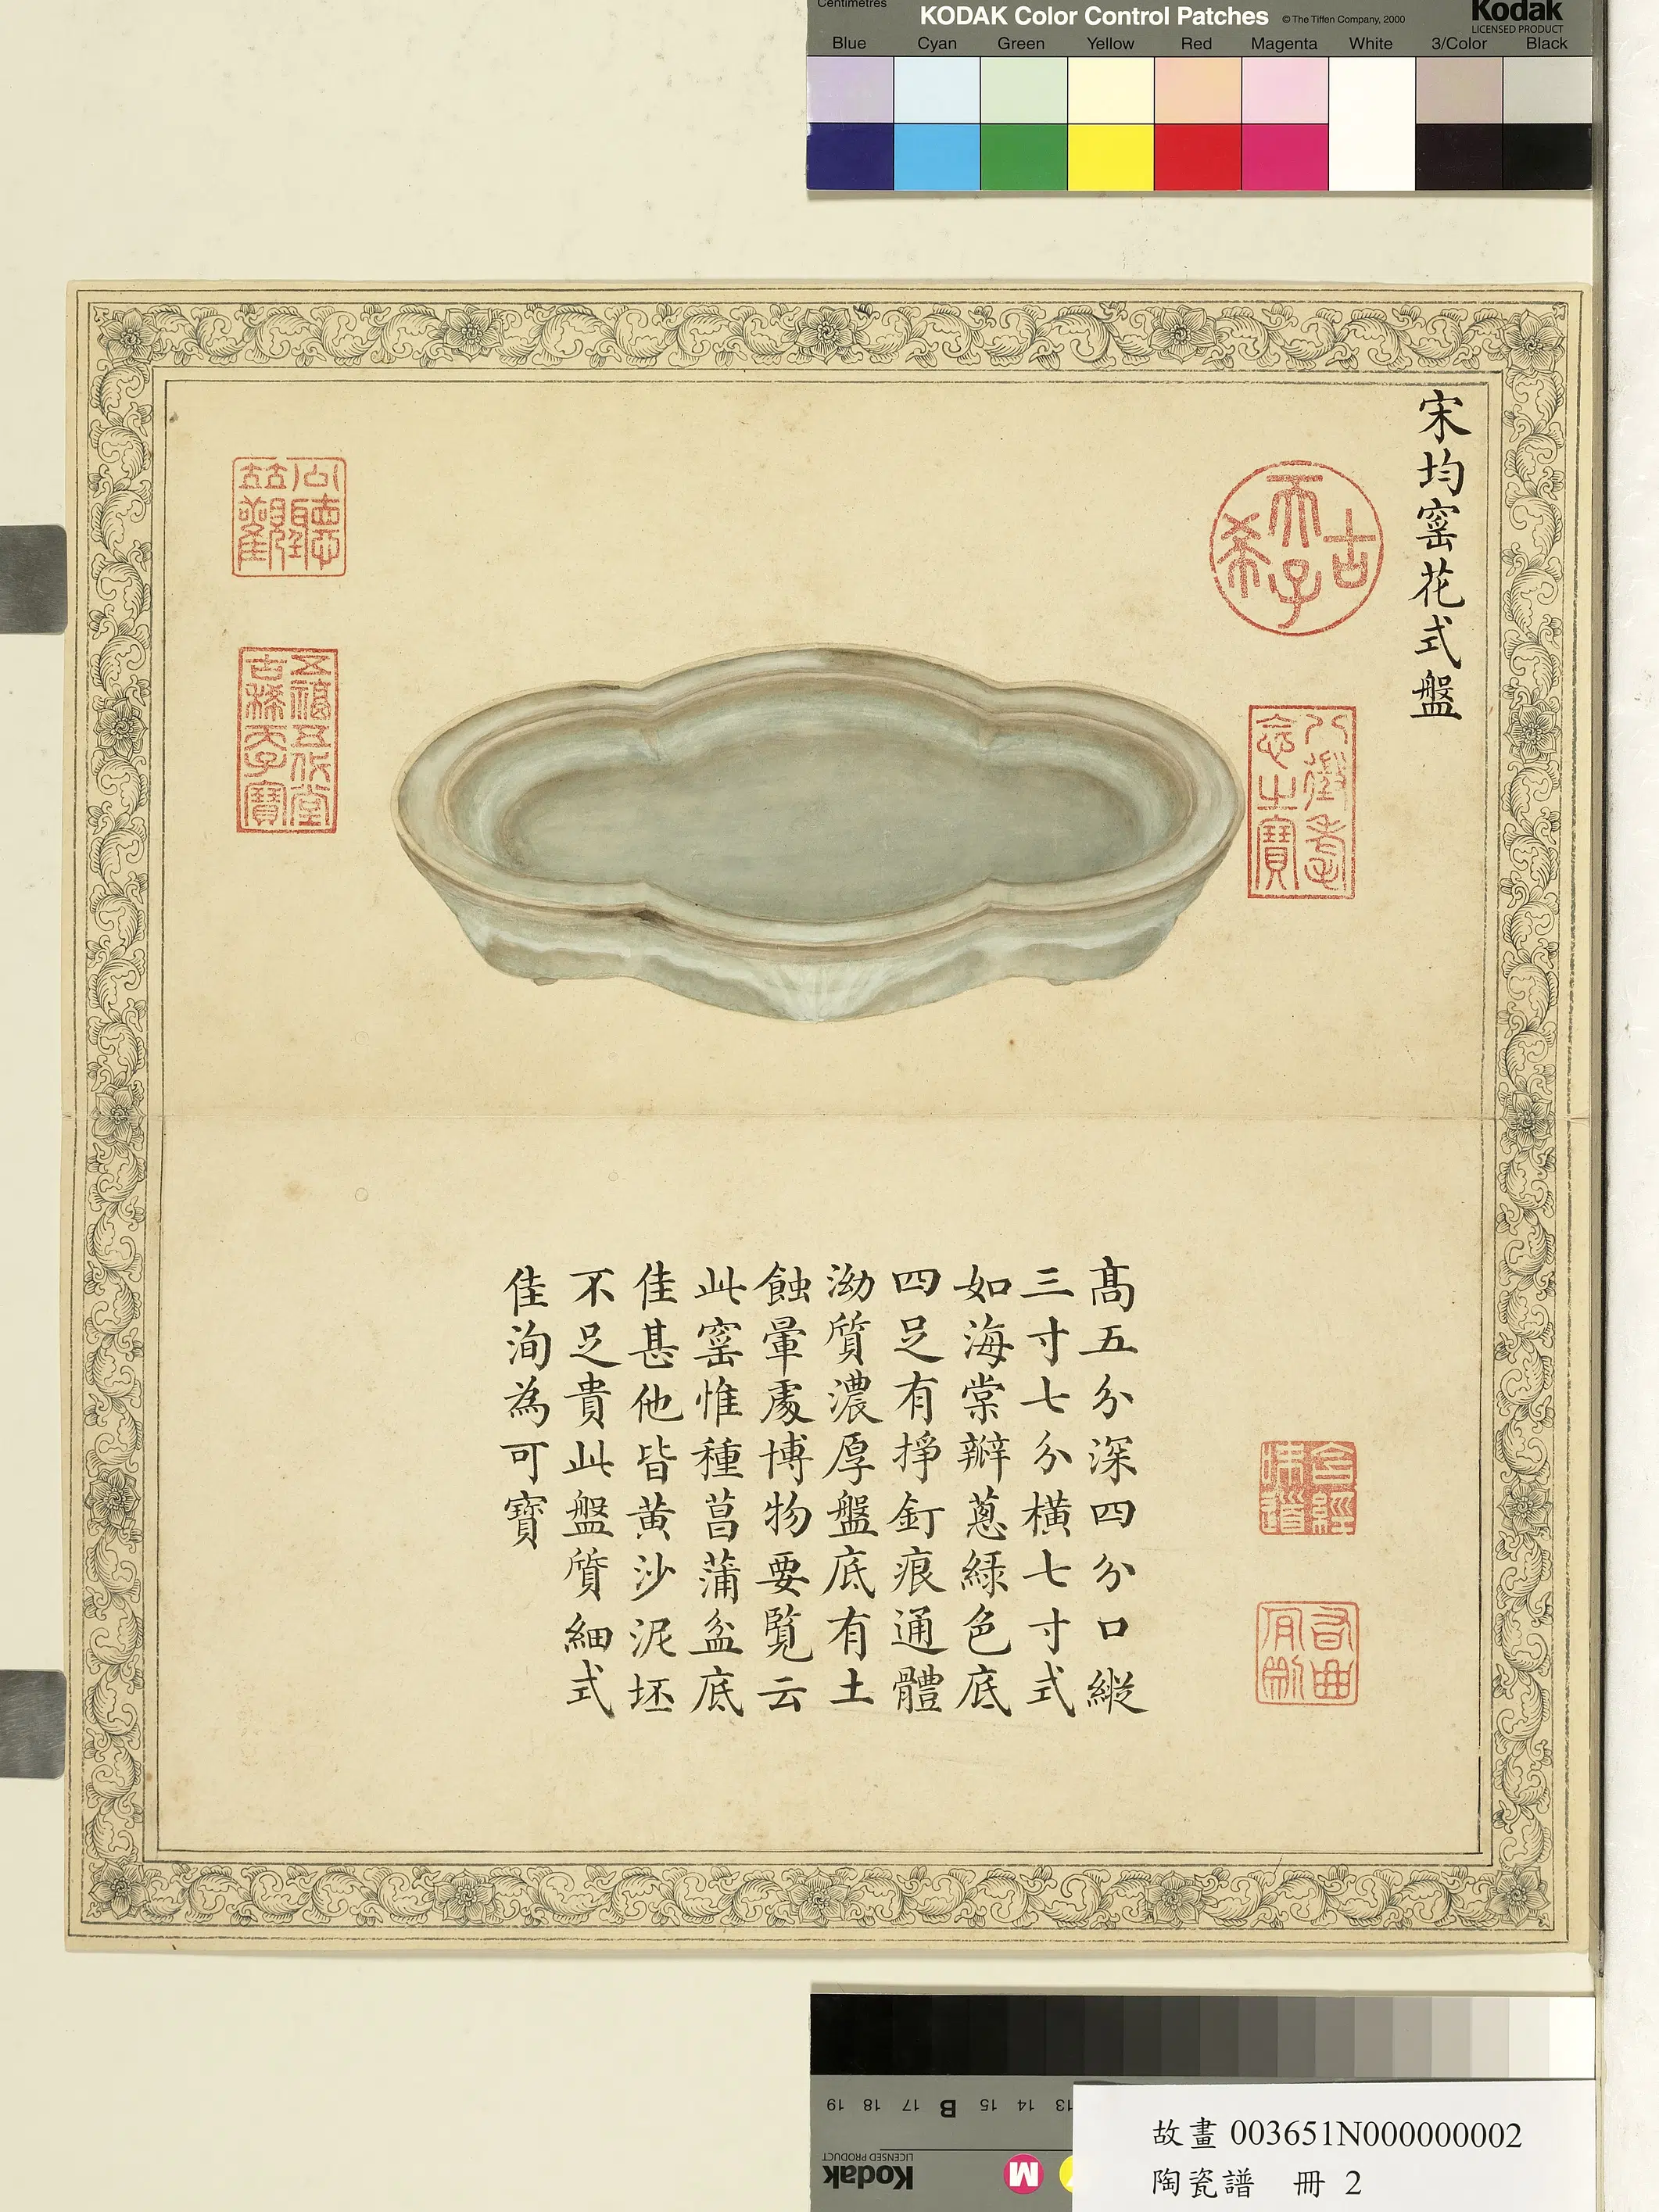 Centimetres
KODAK Color Control Patches
© The Tiffen Company, 2000
Kodak
LICENSED PRODUCT
Blue Cyan Green Yellow Red Magenta White 3/Color Black
宋均窯花式盤
古希天子
八徵耄念之寶
五福五代堂古稀天子寶
高五分深四分口縱
三寸七分橫七寸式
如海棠瓣蔥綠色底
四足有掙釘痕通體
泑質濃厚盤底有土
蝕暈處博物要覽云
此窯惟種菖蒲盆底
佳甚他皆黃沙泥坯
不足貴此盤質細式
佳洵為可寶
19 18 17 B 15 14 13
Kodak
LICENSED PRODUCT
M
故畫 003651N000000002
陶瓷譜 冊 2